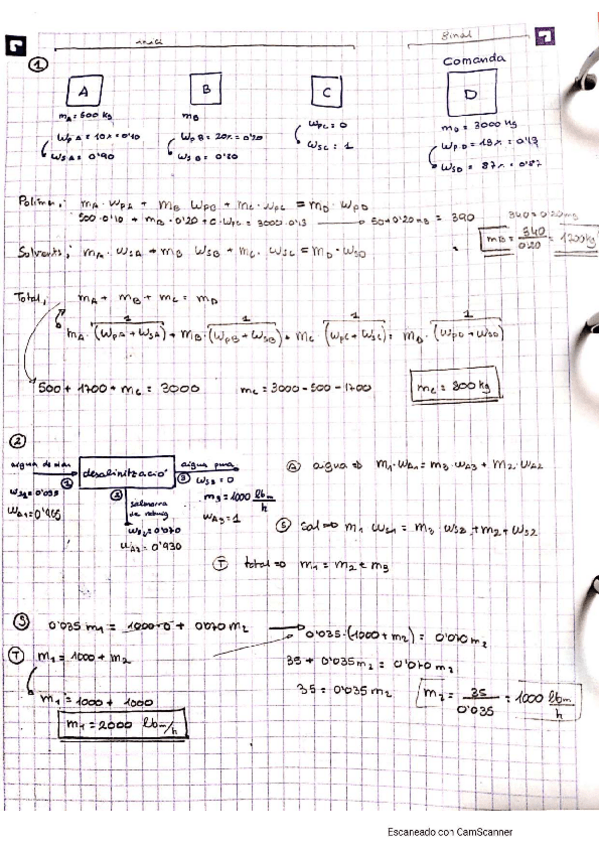 inici final
①
Comanda
A B C D
mA = 500 kg mB mD = 3000 kg
WpA = 10% = 0'10 WpB = 20% = 0'20 WpC = 0 WpD = 13% = 0'13
WSA = 0'90 WSB = 0'80 WSC = 1 WSD = 87% = 0'87
Polímer: mA · WpA + mB WpB + mC · WpC = mD · WpD
500·0'10 + mB · 0'20 + 0 · WpC = 3000·0'13 → 50+0'20mB = 390 340=0'20mB
mB = 340/0'20 = 1700 kg
Solvent: mA · WSA + mB WSB + mC · WSC = mD · WSD
Total: mA + mB + mC = mD
1 1 1 1
mA · (WpA + WSA) + mB · (WpB + WSB) + mC (WpC + WSC) = mD · (WpD + WSD)
500 + 1700 + mC = 3000 mC = 3000 - 500 - 1700 mC = 800 kg
②
aigua de mar ① desalinització ③ aigua pura
WS1 = 0'035 WS3 = 0
WA1 = 0'965 m3 = 1000 lbm/h
WA3 = 1
② salmorra de rebuig
WS2 = 0'070
WA2 = 0'930
Ⓐ aigua ⇒ m1 · WA1 = m3 · WA3 + m2 · WA2
Ⓢ sal ⇒ m1 WS1 = m3 · WS3 + m2 + WS2
Ⓣ total ⇒ m1 = m2 + m3
Ⓢ 0'035 m1 = 1000·0 + 0'070 m2 → 0'035·(1000 + m2) = 0'070 m2
Ⓣ m1 = 1000 + m2 35 + 0'035 m2 = 0'070 m2
m1 = 1000 + 1000 35 = 0'035 m2 m2 = 35/0'035 = 1000 lbm/h
m1 = 2000 lbm/h
Escaneado con CamScanner